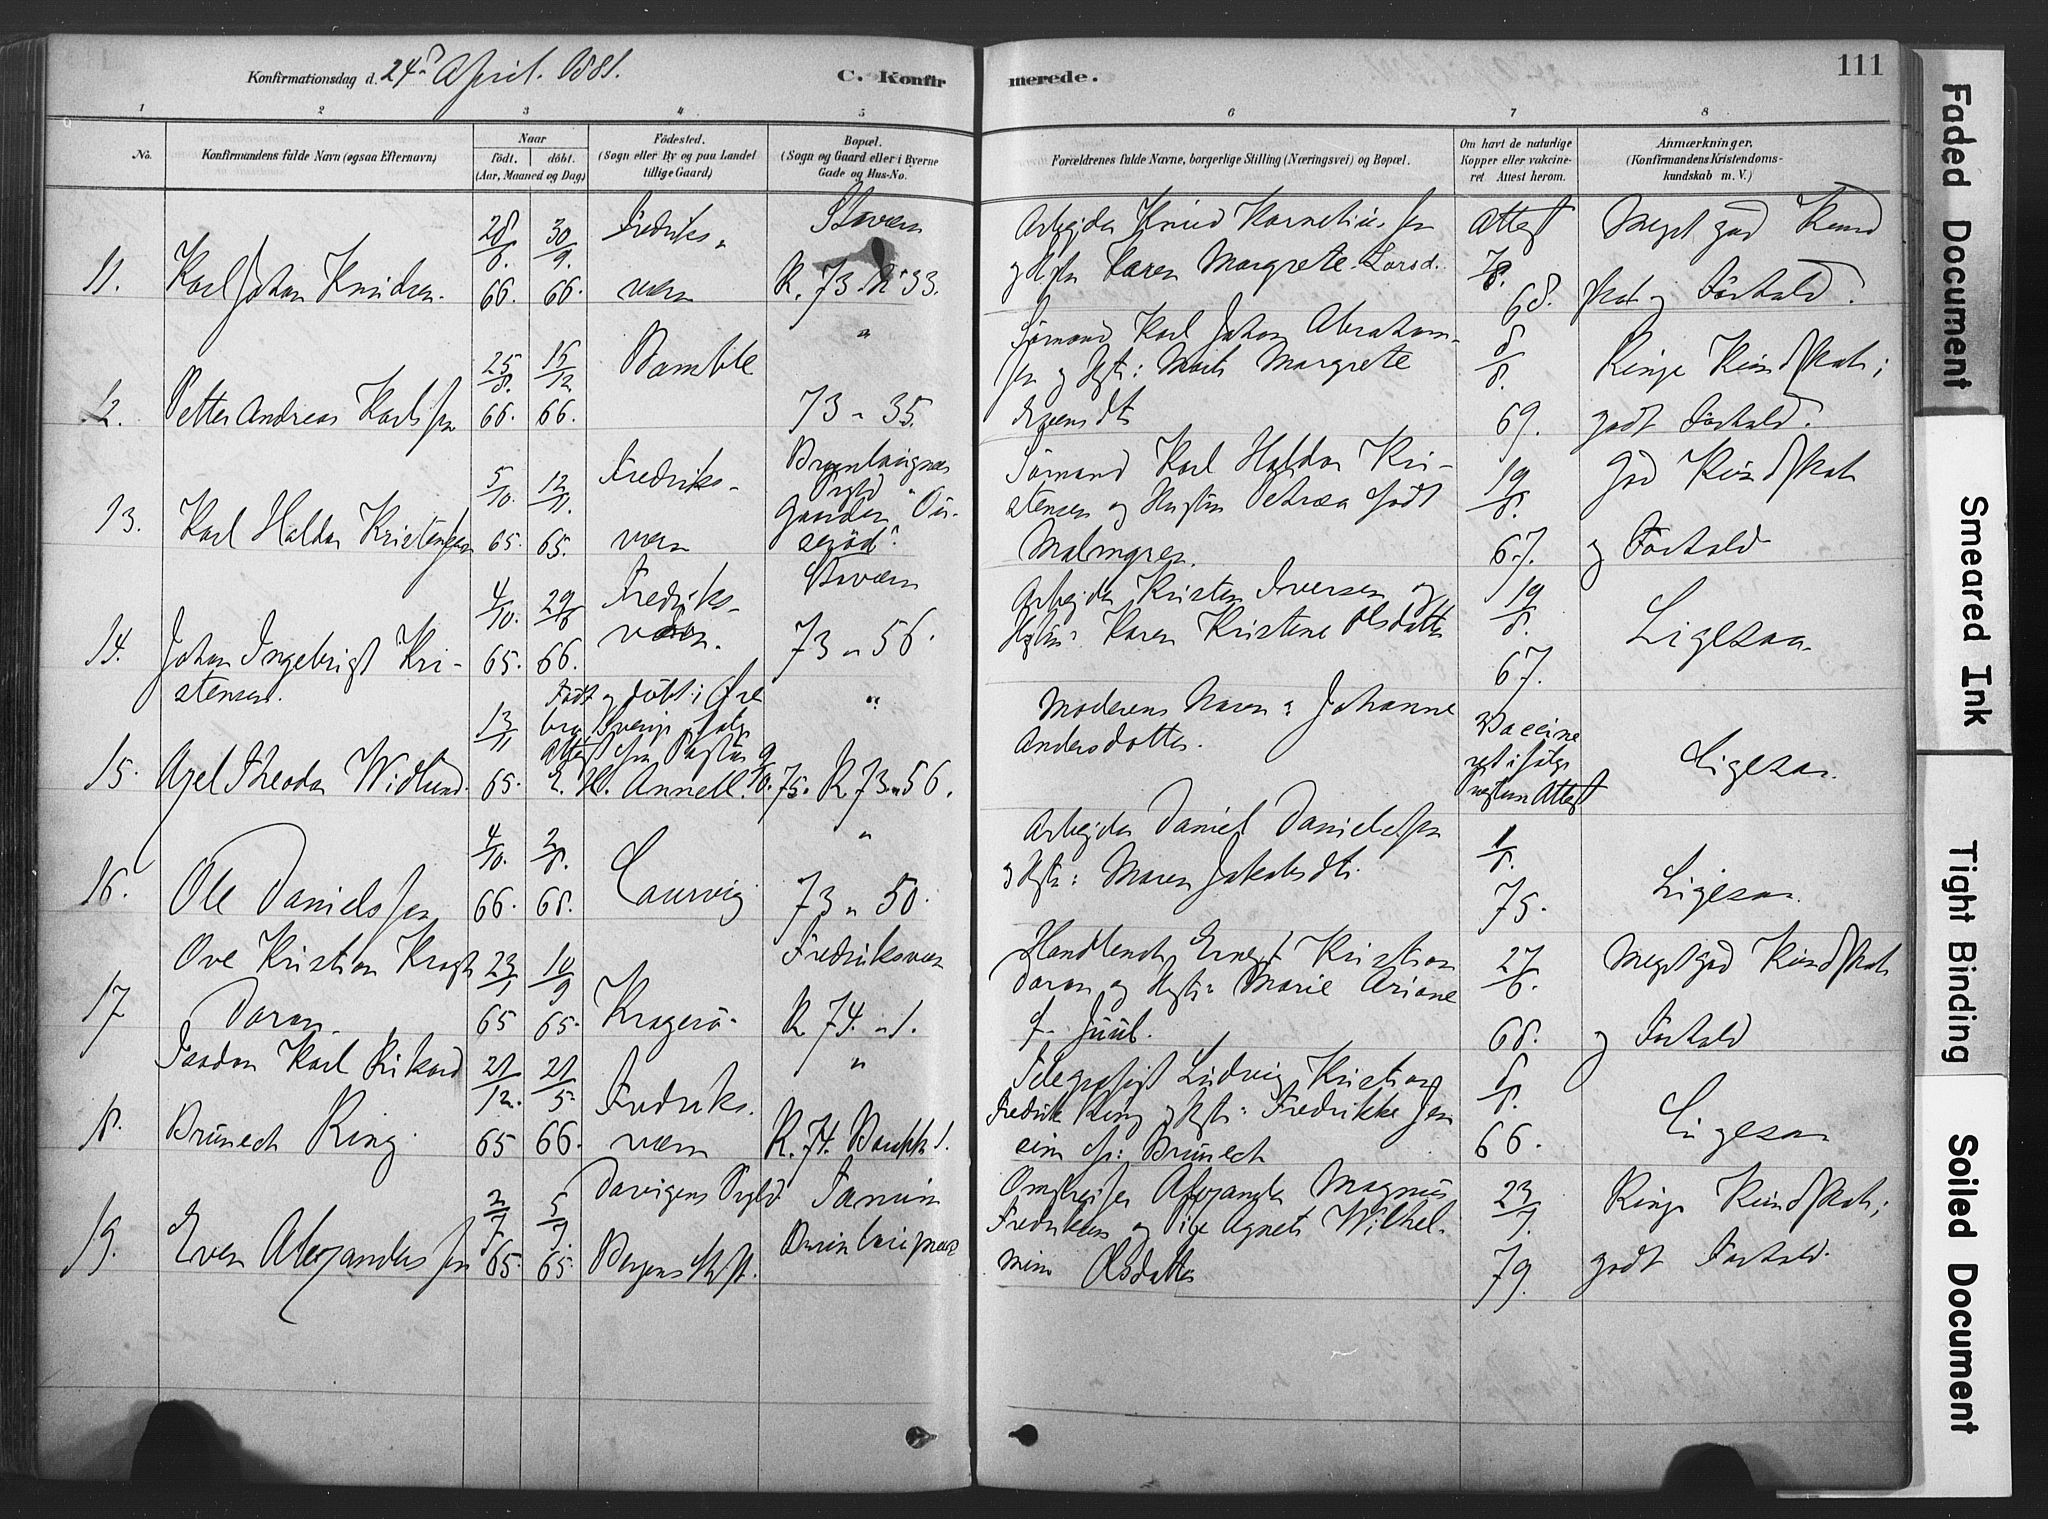 Konfirmationsdag d. 24de April. 1881.
C. Konfirmerede.
111
1 2 3 4 5 6 7 8
No.
Konfirmandens fulde Navn (ogsaa Efternavn)
Naar
födt. döbt.
(Aar, Maaned og Dag)
Födested.
(Sogn eller By og paa Landet
tillige Gaard)
Bopæl.
(Sogn og Gaard eller i Byerne
Gade og Hus-No.
Forældrenes fulde Navne, borgerlige Stilling (Næringsvei) og Bopæl.
Om havt de naturlige
Kopper eller vakcine-
ret Attest herom.
Anmærkninger.
(Konfirmandens Kristendoms-
kundskab m. V.)
11.
Karl Johan Knudsen.
28/8. 66.
30/9. 66.
Fredriks-
værn
Staværn
R. 73 No 33.
Arbejder Knud Kornelius sen
og Hustru Karen Margrete Larsd.
Attest
68.
Meget god Kund
skab og Forhold.
12.
Petter Andreas Karlssen
25/8. 66.
15/12 66.
Bamble
"
73 " 35.
Sømand Karl Johan Abraham-
sen og Hustr: Margrete
8/8. 69.
Ringe Kundskab;
godt Forhold.
13.
Karl Haldor Kristensen
5/10. 65.
12/11. 65.
Fredriks-
værn
Brunlangnæs
Prgld
Gaarden
Sømand Karl Haldor Kri-
stensen og Hustru Petræa født
Malmgren.
19/8. 67.
God Kundskab
og Forhold
14.
Johan Ingebrigt Kri-
stensen.
4/10. 65.
29/6 66.
Fredriks-
værn.
Staværn
73 " 56.
Arbejder Kristen Iversen og
Hustru: Karen Kristine Olsdatter
19/8. 67.
Ligesaa
15.
Axel Theodor Widlund.
13/11 65.
Født og døbt i Øre
bro, Sverige ifølge
Attest fra Pastor
E. H. Annell. 75.
"
R. 73 " 56.
Moderens Navn: Johanne
Andersdotter.
Vaccine
ret ifølge
Attest
Ligesaa.
16.
Ole Danielssen
4/10. 66.
2/8. 68.
Laurvig
"
73 " 50.
Arbejder Daniel Danielssen
og Hustr: Maren Jakobsdtr.
1/8. 75.
Ligesaa.
17
Ove Kristian Kragh
23/1 65
10/9 65.
Kragerø
Fredriksværn
R. 74. " 1.
Handlende Ernst Kristian
og Hustr: Marie Ariane
f. Juul.
27/6 68.
Meget god Kundskab
og Forhold
18.
Karl Rikard
Brünech Ring.
21/12. 65
21/5 66.
Fredriks.
værn
"
R. 74.
Telegrafist Ludvig Kristian
Fredrik Ring og Hustr: Fredrikke
Brünech
8/8. 66.
Ligesaa
19.
Even Alexanderssen
2/7 65.
5/9. 65.
Davigens Prgld
Bergens Stift.
Tanum
Brunlangnæs
Alexander Magnus
Fredriksen og Agnete Wilhel-
mine Olsdatter
23/1. 79.
Ringe Kundskab;
godt Forhold.
Faded Document
Smeared Ink
Tight Binding
Soiled Document